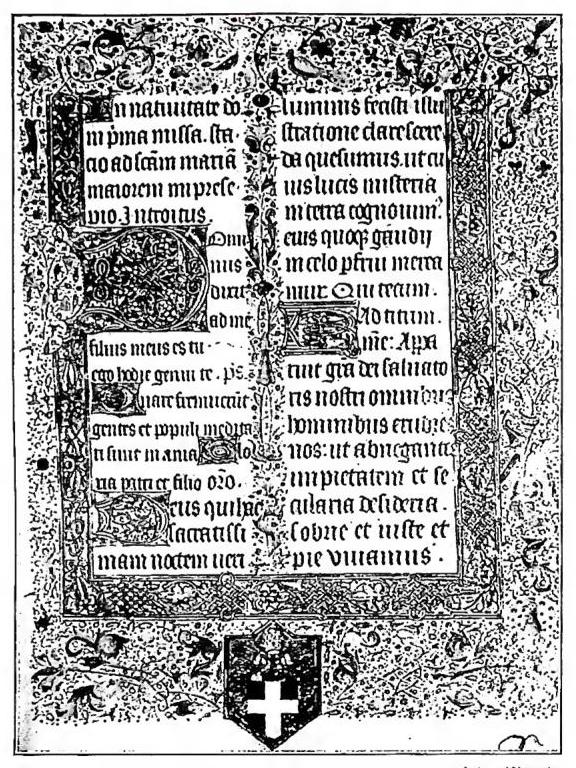 In nativitate do
in p̄ma missa. sta
cio ad scām mariā
maiorem in prese
pio. Introitus.
Domi
nus
dixit
ad me
filius meus es tu
ego hodie genui te. p̄s.
Quare fremuerūt
gentes et populi medita
ti sunt inania Glo
ria patri et filio orō.
Deus qui hāc
sacratissi
mam noctem veri
luminis fecisti illu
stratione clarescere
da quesumus. ut cu
ius lucis misteria
in terra cognovim᷒
eius quoqȝ gaudij
in celo pfrui merea
mur Qui tecum.
Ad titum.
me: Appa
ruit gra dei salvato
ris nostri omnibus
hominibus erudie
nos: ut abnegante
impietatem et se
cularia desideria.
sobrie et iuste et
pie vivamus.